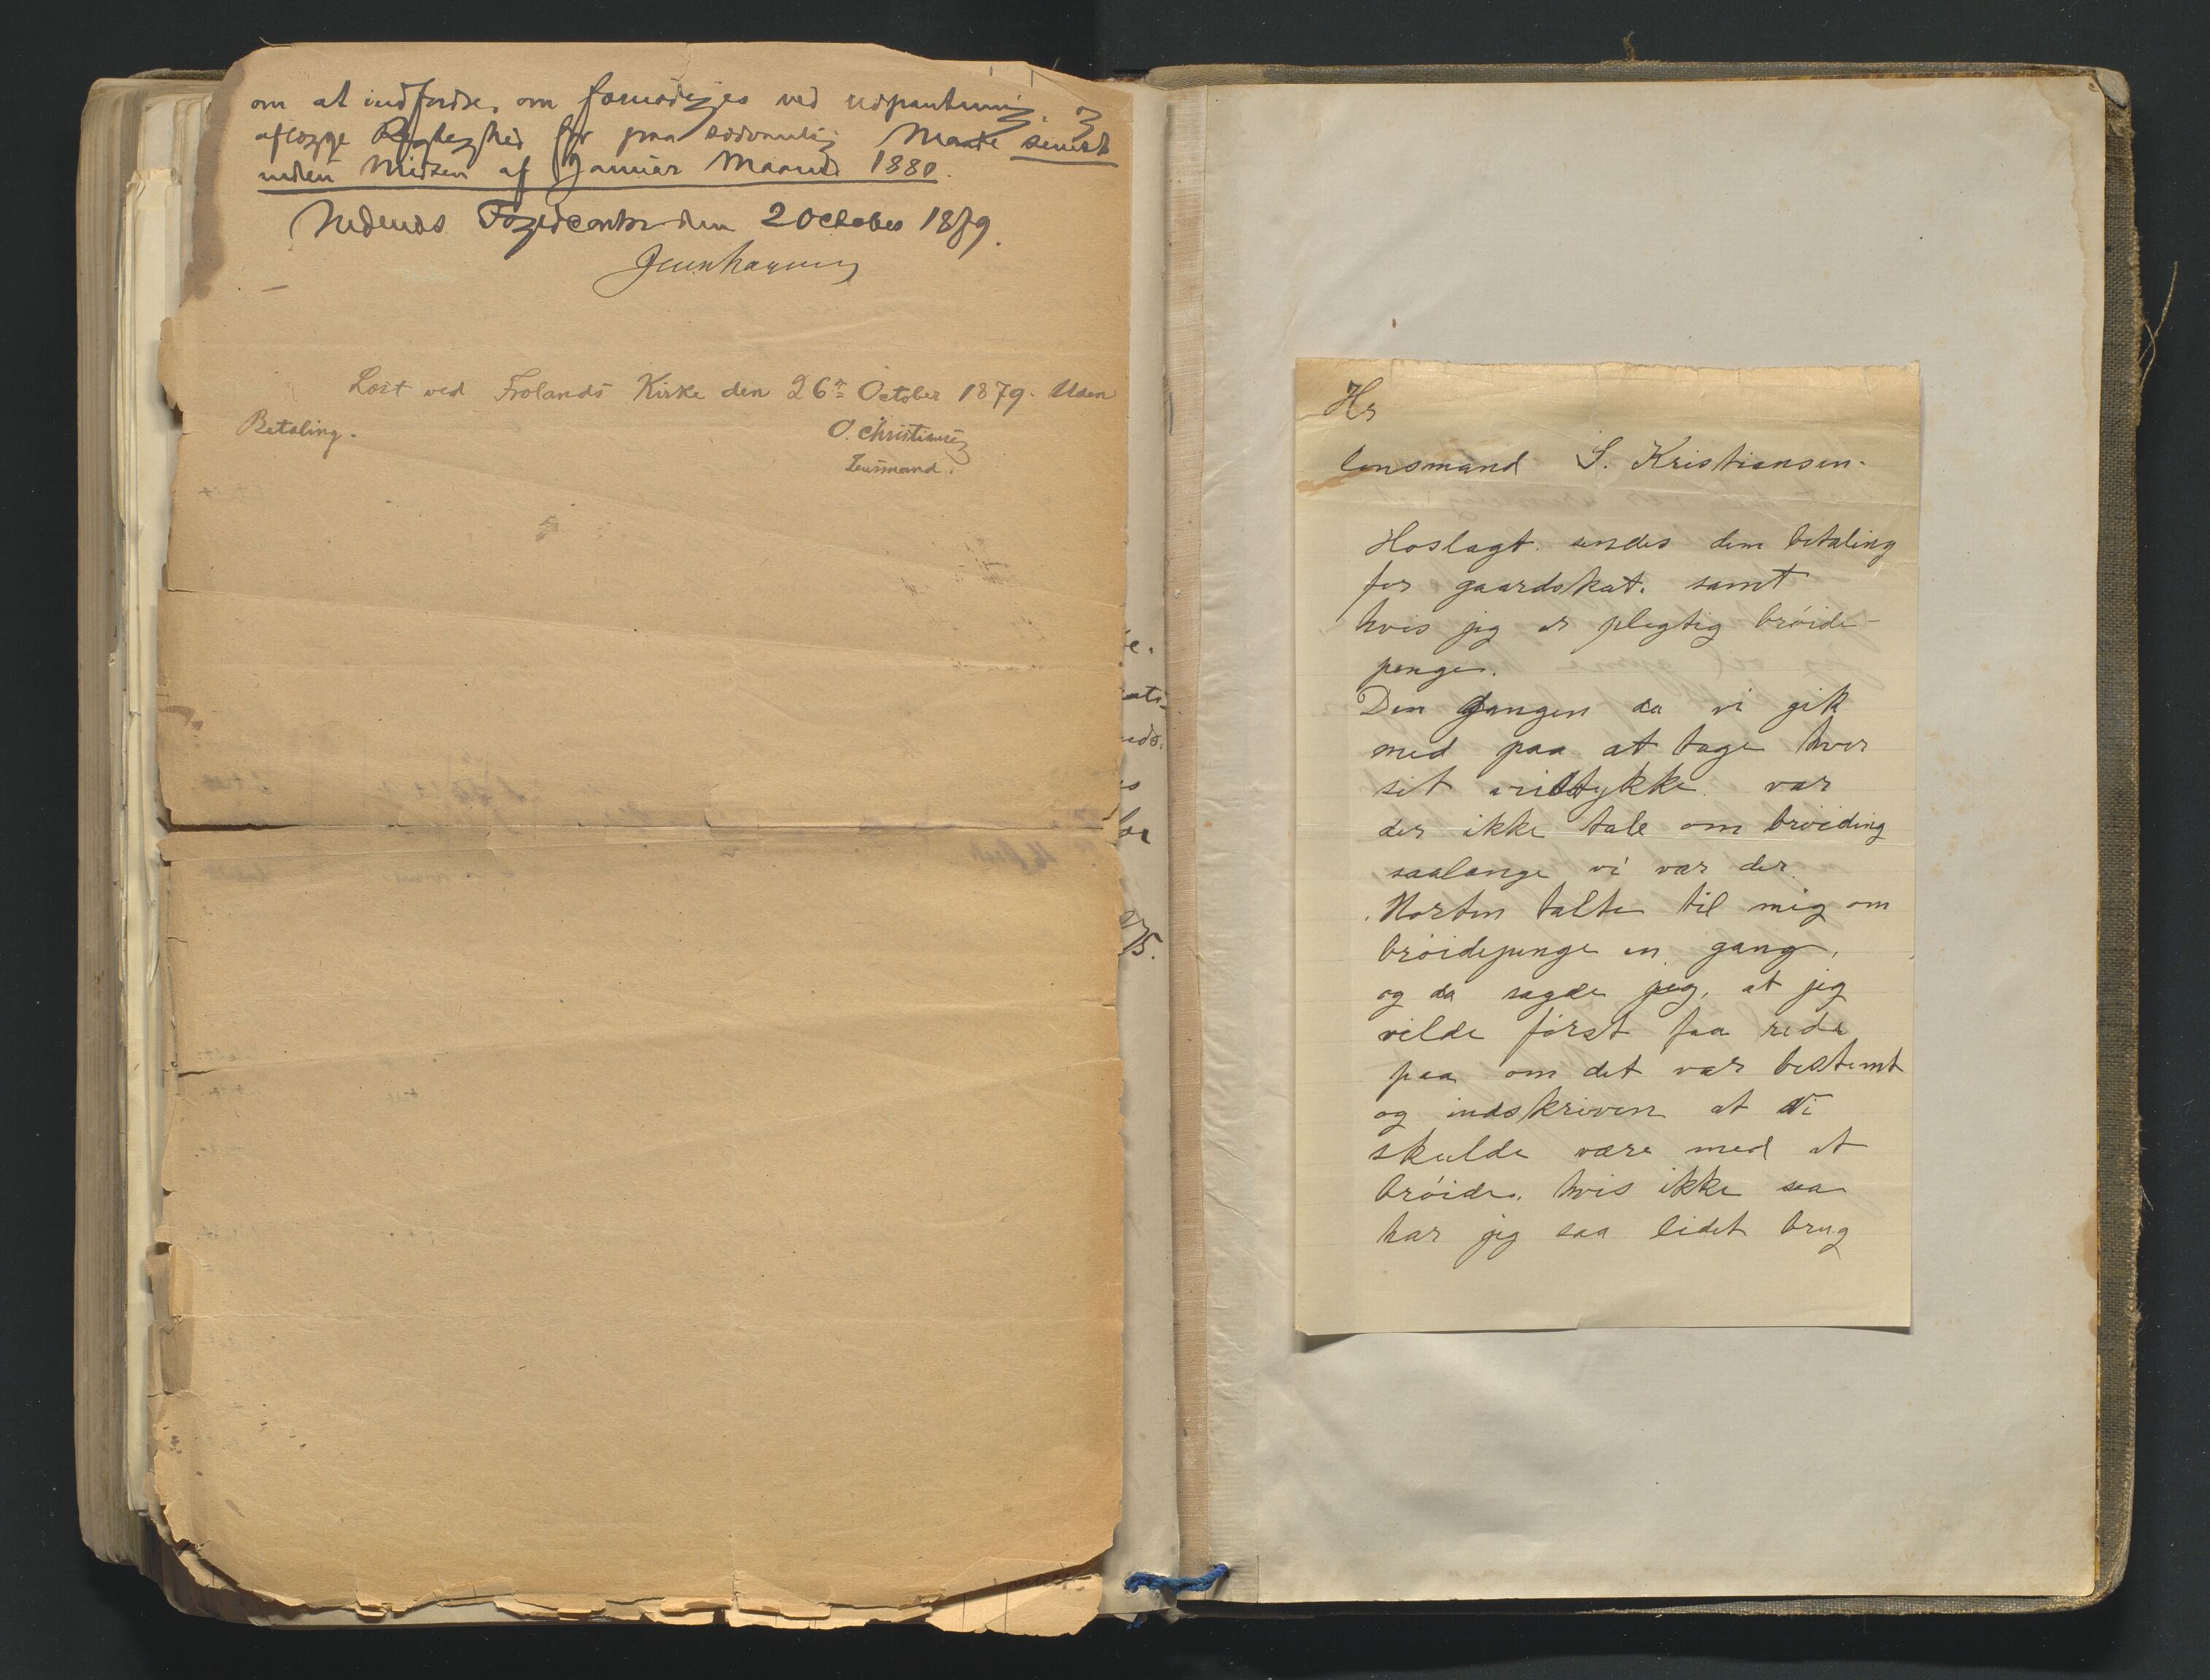 om at indfordre, om fornødiges ved Udpantning, og
aflægge Rigtighed for paa sædvanlig Maade senest
inden Midten af Januar Maaned 1880.
Nedenæs Fogedcontor den 2 October 1879.
Læst ved Frolands Kirke den 26de October 1879. Uden
Betaling.
O. Christiansen
Lensmand.
Hr
lensmand S. Kristiansen.
Hoslagt sendes dem betaling
for gaardskat. samt
hvis jeg er plegtig brøide-
penger.
Den gangen da vi gik
med paa at tage hver
sit veistykke var
der ikke tale om brøiding
saalænge vi var der.
Morten talte til mig om
brøidepenge en gang,
og da sagde jeg, at jeg
vilde først faa rede
paa om det var bestemt
og indskreven at vi
skulde være med at
brøide. hvis ikke saa
har jeg saa lidet brug